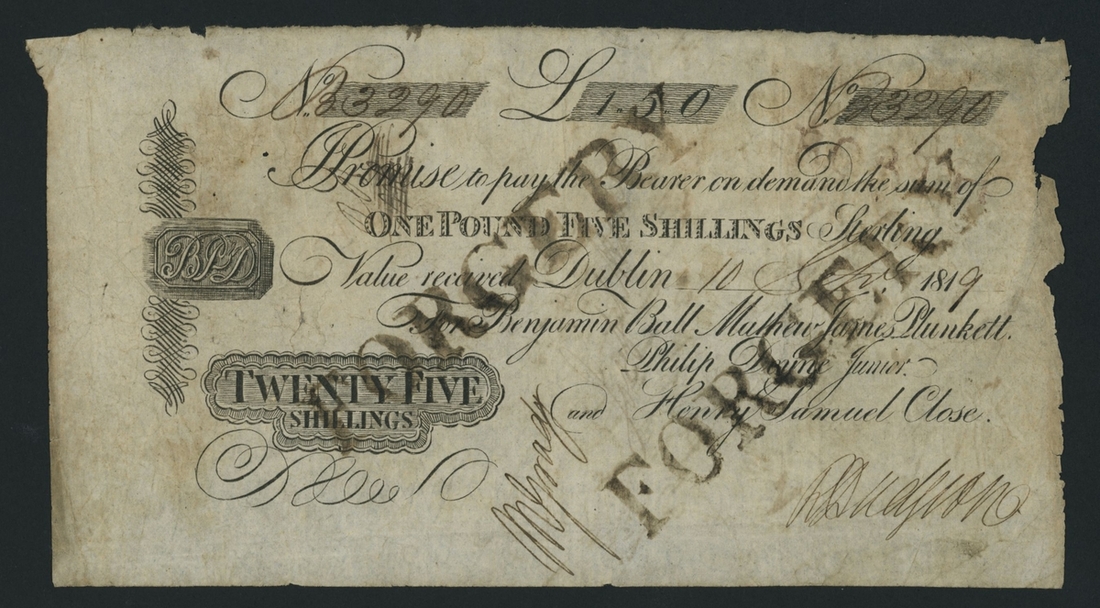 No. 23290 £ 1.5.0 No. 23290
I Promise to pay the Bearer on demand the sum of
ONE POUND FIVE SHILLINGS Sterling
BPD
Value received Dublin 10 1819
For Benjamin Ball Mathew James Plunkett.
Philip Doyne Junior.
and Henry Samuel Close.
TWENTY FIVE
SHILLINGS
FORGERY
FORGERY